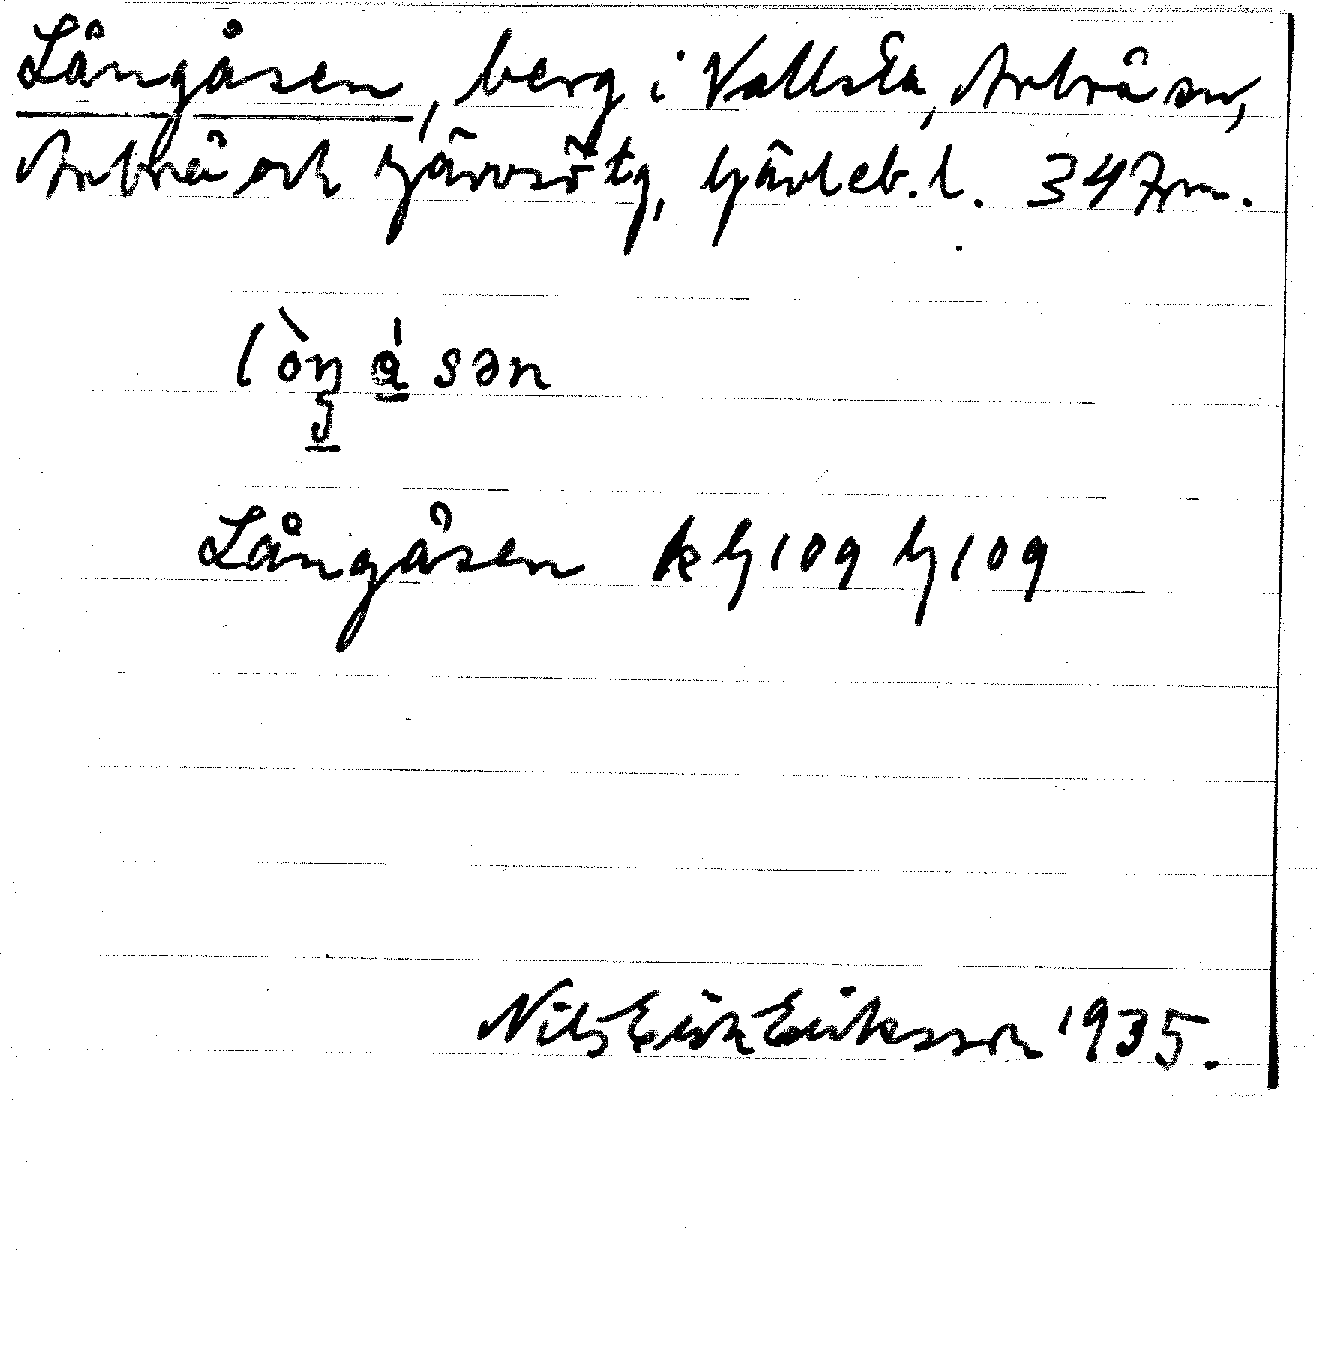 Långåsen, berg i Vallsta, Arbrå sn,
Arbrå och Järvsö tg, Gävleb. l. 347m.
lòŋ ǻ sən
g
Långåsen kG109 G109
Nils Erik Eriksson 1935.